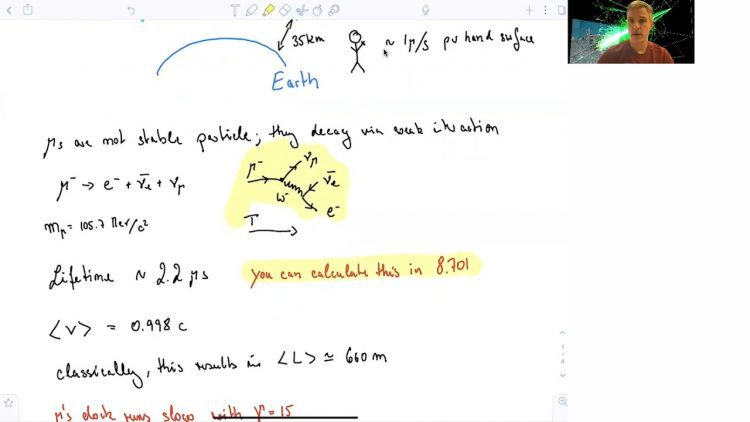 35km
~ 1μ/s per hand surface
Earth
μs are not stable particle; they decay via weak interaction
μ⁻ → e⁻ + ν̅e + νμ
μ⁻ νμ ν̅e W⁻ e⁻
mμ = 105.7 MeV/c²
T
Lifetime ~ 2.2 μs you can calculate this in 8.701
⟨v⟩ = 0.998 c
classically, this results in ⟨L⟩ ≃ 660 m
μ's clock runs slow with γ = 15